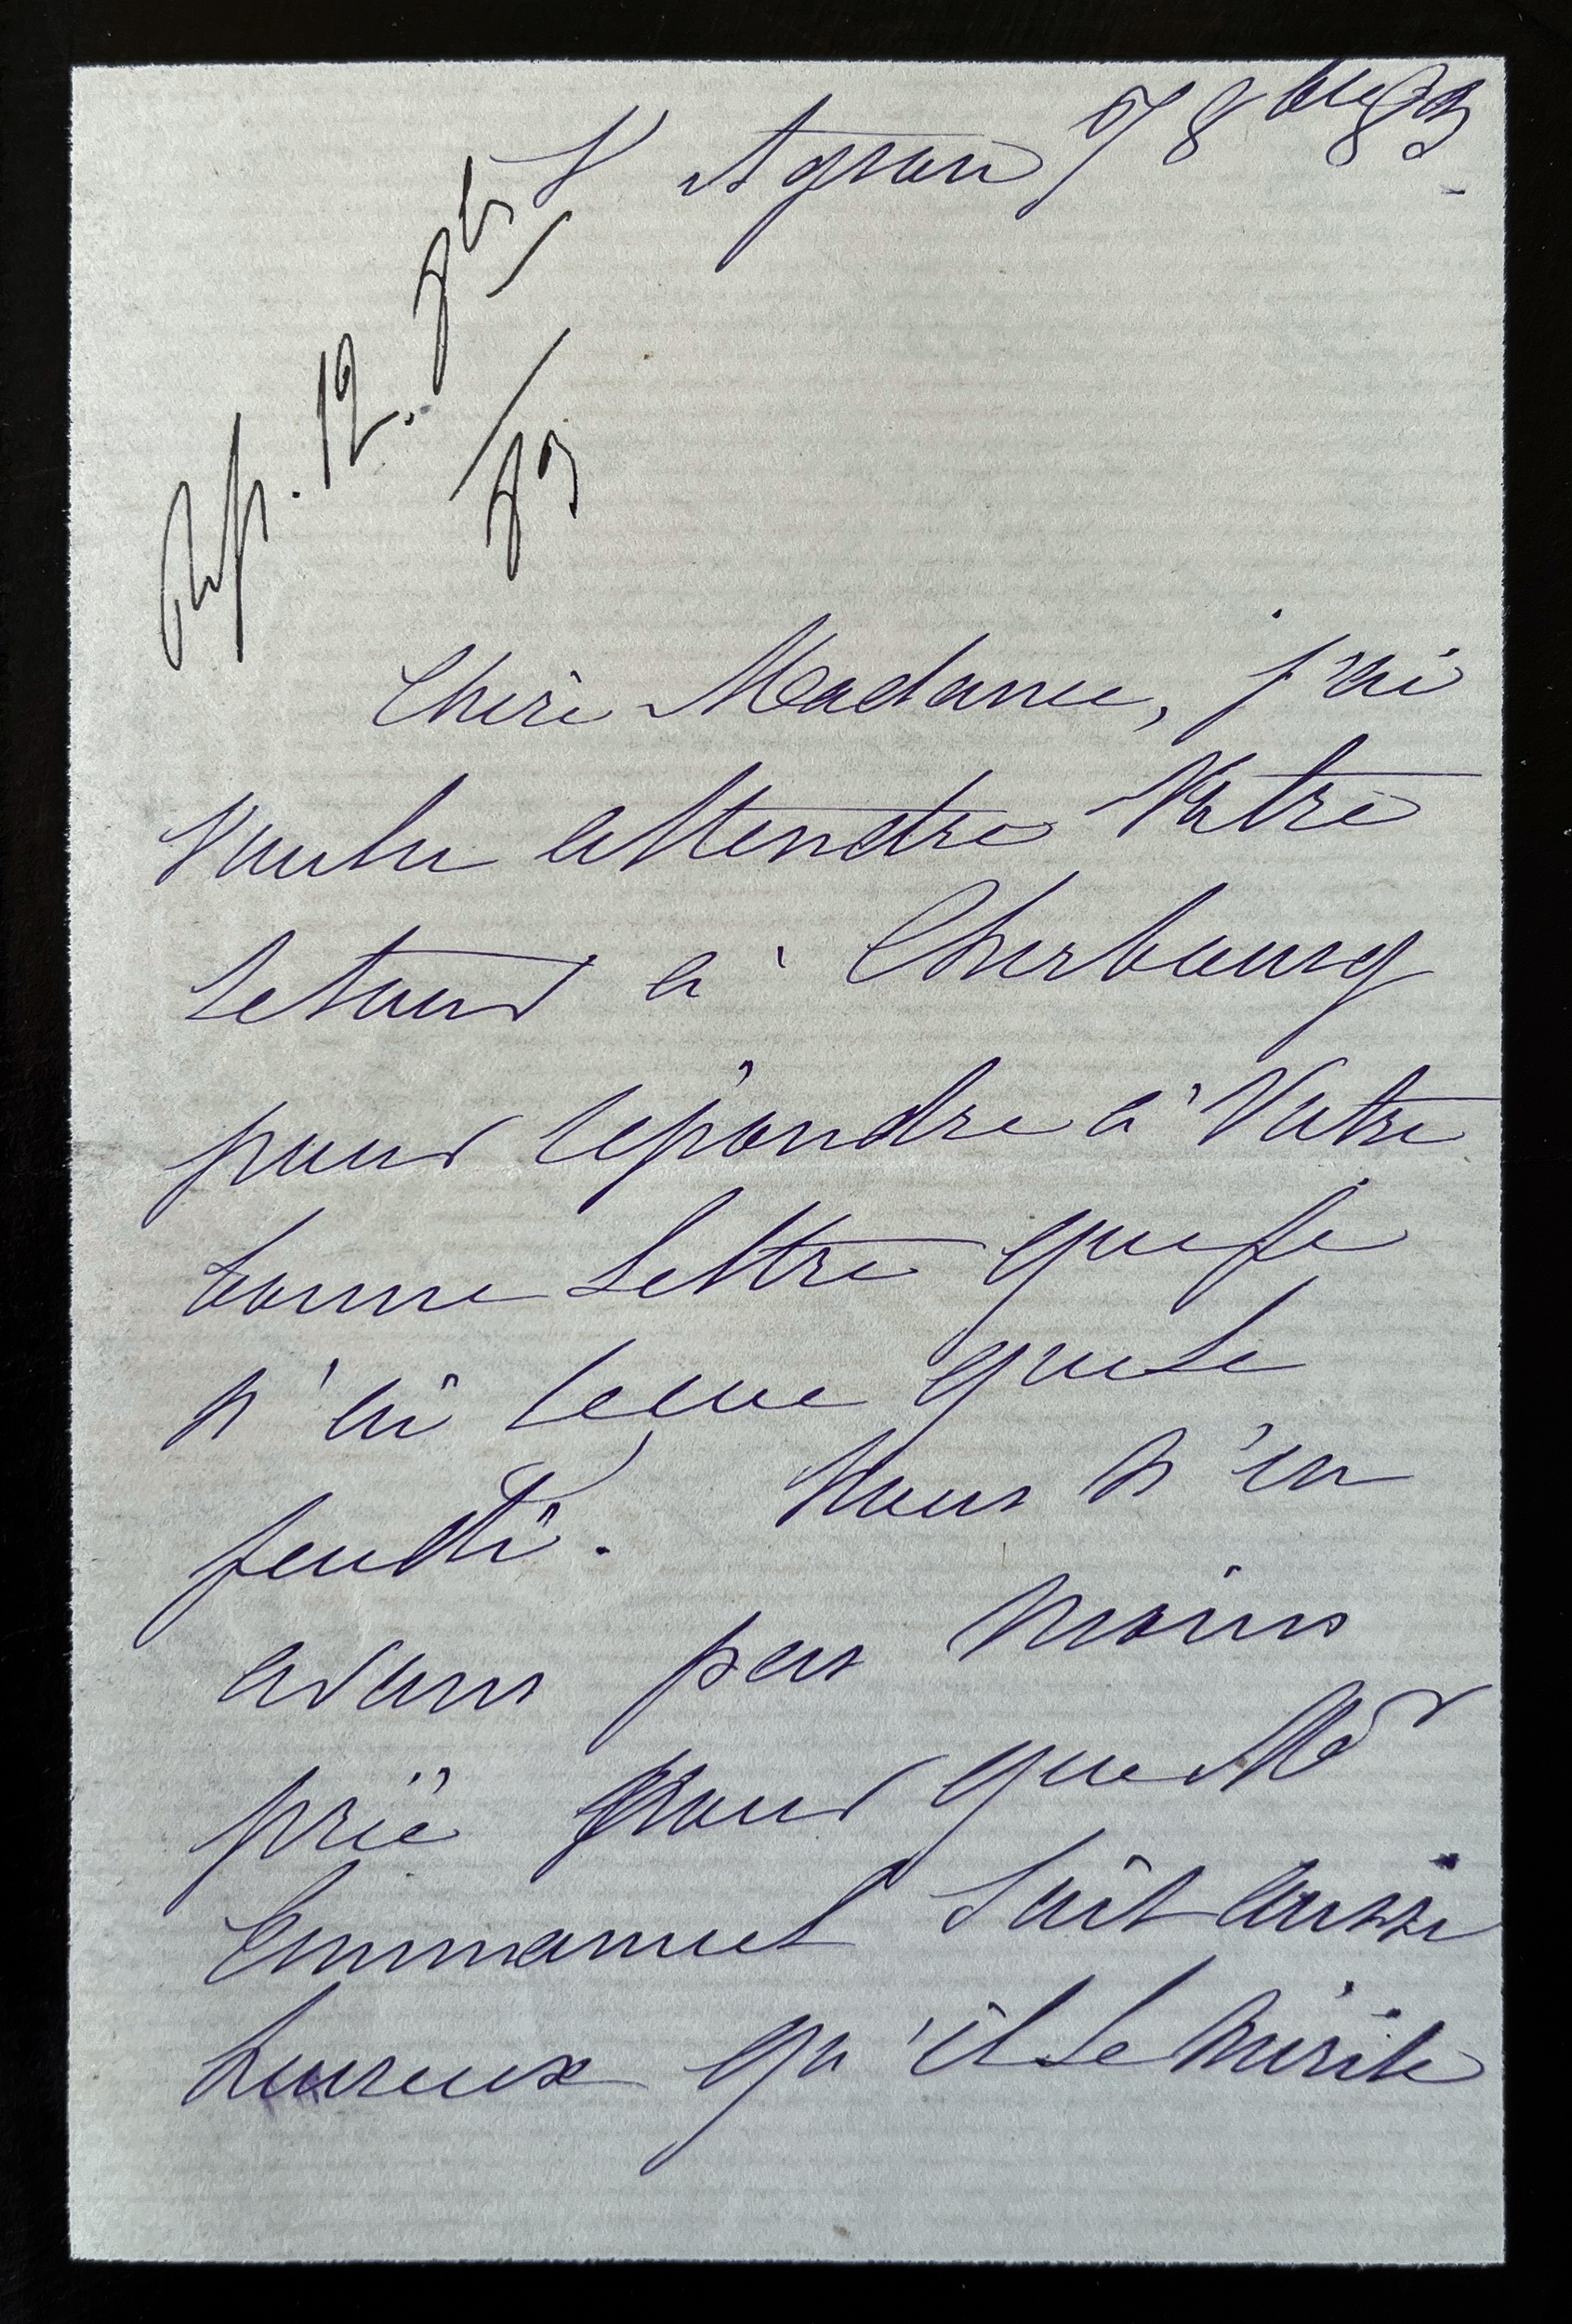 St Agnan 7 8bre 83
Rép. 12. 8bre
/83
Chère Madame, j'ai
Voulu attendre Votre
retour à Cherbourg
pour répondre à Votre
bonne lettre que je
n'ai reçue que le
jeudi. Nous n'en
avons pas moins
prié pour que Mr
Emmanuel soit aussi
heureux qu'il le mérite